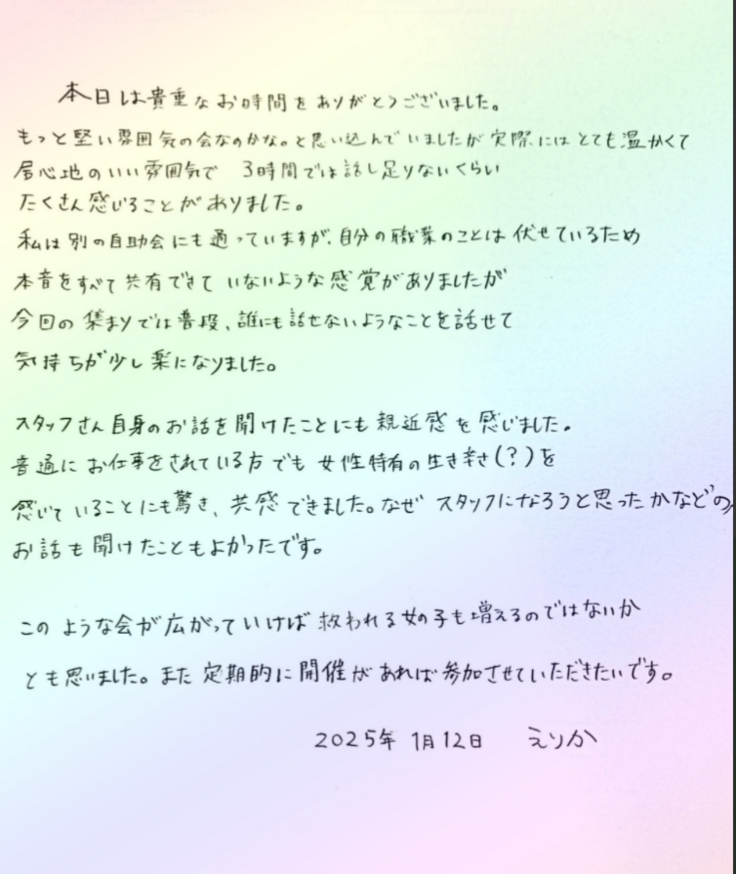 本日は貴重なお時間をありがとうございました。
もっと堅い雰囲気の会なのかな。と思い込んでいましたが実際にはとても温かくて
居心地のいい雰囲気で 3時間では話し足りないくらい
たくさん感じることがありました。
私は別の自助会にも通っていますが、自分の職業のことは伏せているため
本音をすべて共有できていないような感覚がありましたが
今回の集まりでは普段、誰にも話せないようなことを話せて
気持ちが少し楽になりました。
スタッフさん自身のお話を聞けたことにも親近感を感じました。
普通にお仕事をされている方でも女性特有の生き辛さ(?)を
感じていることにも驚き、共感できました。なぜスタッフになろうと思ったかなどの
お話も聞けたこともよかったです。
このような会が広がっていけば救われる女の子も増えるのではないか
とも思いました。また定期的に開催があれば参加させていただきたいです。
2025年 1月12日 えりか